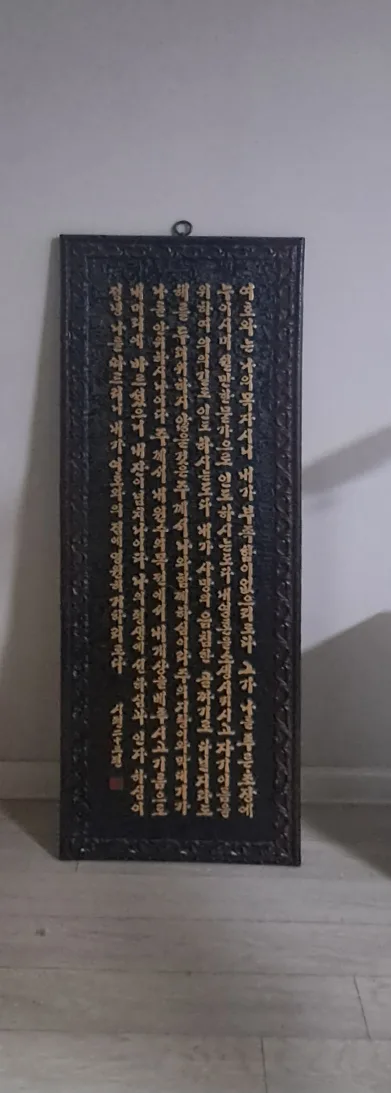 여호와는 나의 목자시니 내가 부족함이 없으리로다 그가 나를 푸른 초장에
누이시며 쉴만한 물가으로 인도하시는도다 내 영혼을 소생시키시고 자기 이름을
위하여 의의 길로 인도하시는도다 내가 사망의 음침한 골짜기로 다닐지라도
해를 두려워하지 않을 것은 주께서 나와 함께 하심이라 주의 지팡이와 막대기가
나를 안위하시나이다 주께서 내 원수의 목전에서 내게 상을 베푸시고 기름으로
내 머리에 바르셨으니 내 잔이 넘치나이다 나의 평생에 선하심과 인자하심이
정녕 나를 따르리니 내가 여호와의 집에 영원히 거하리로다 시편